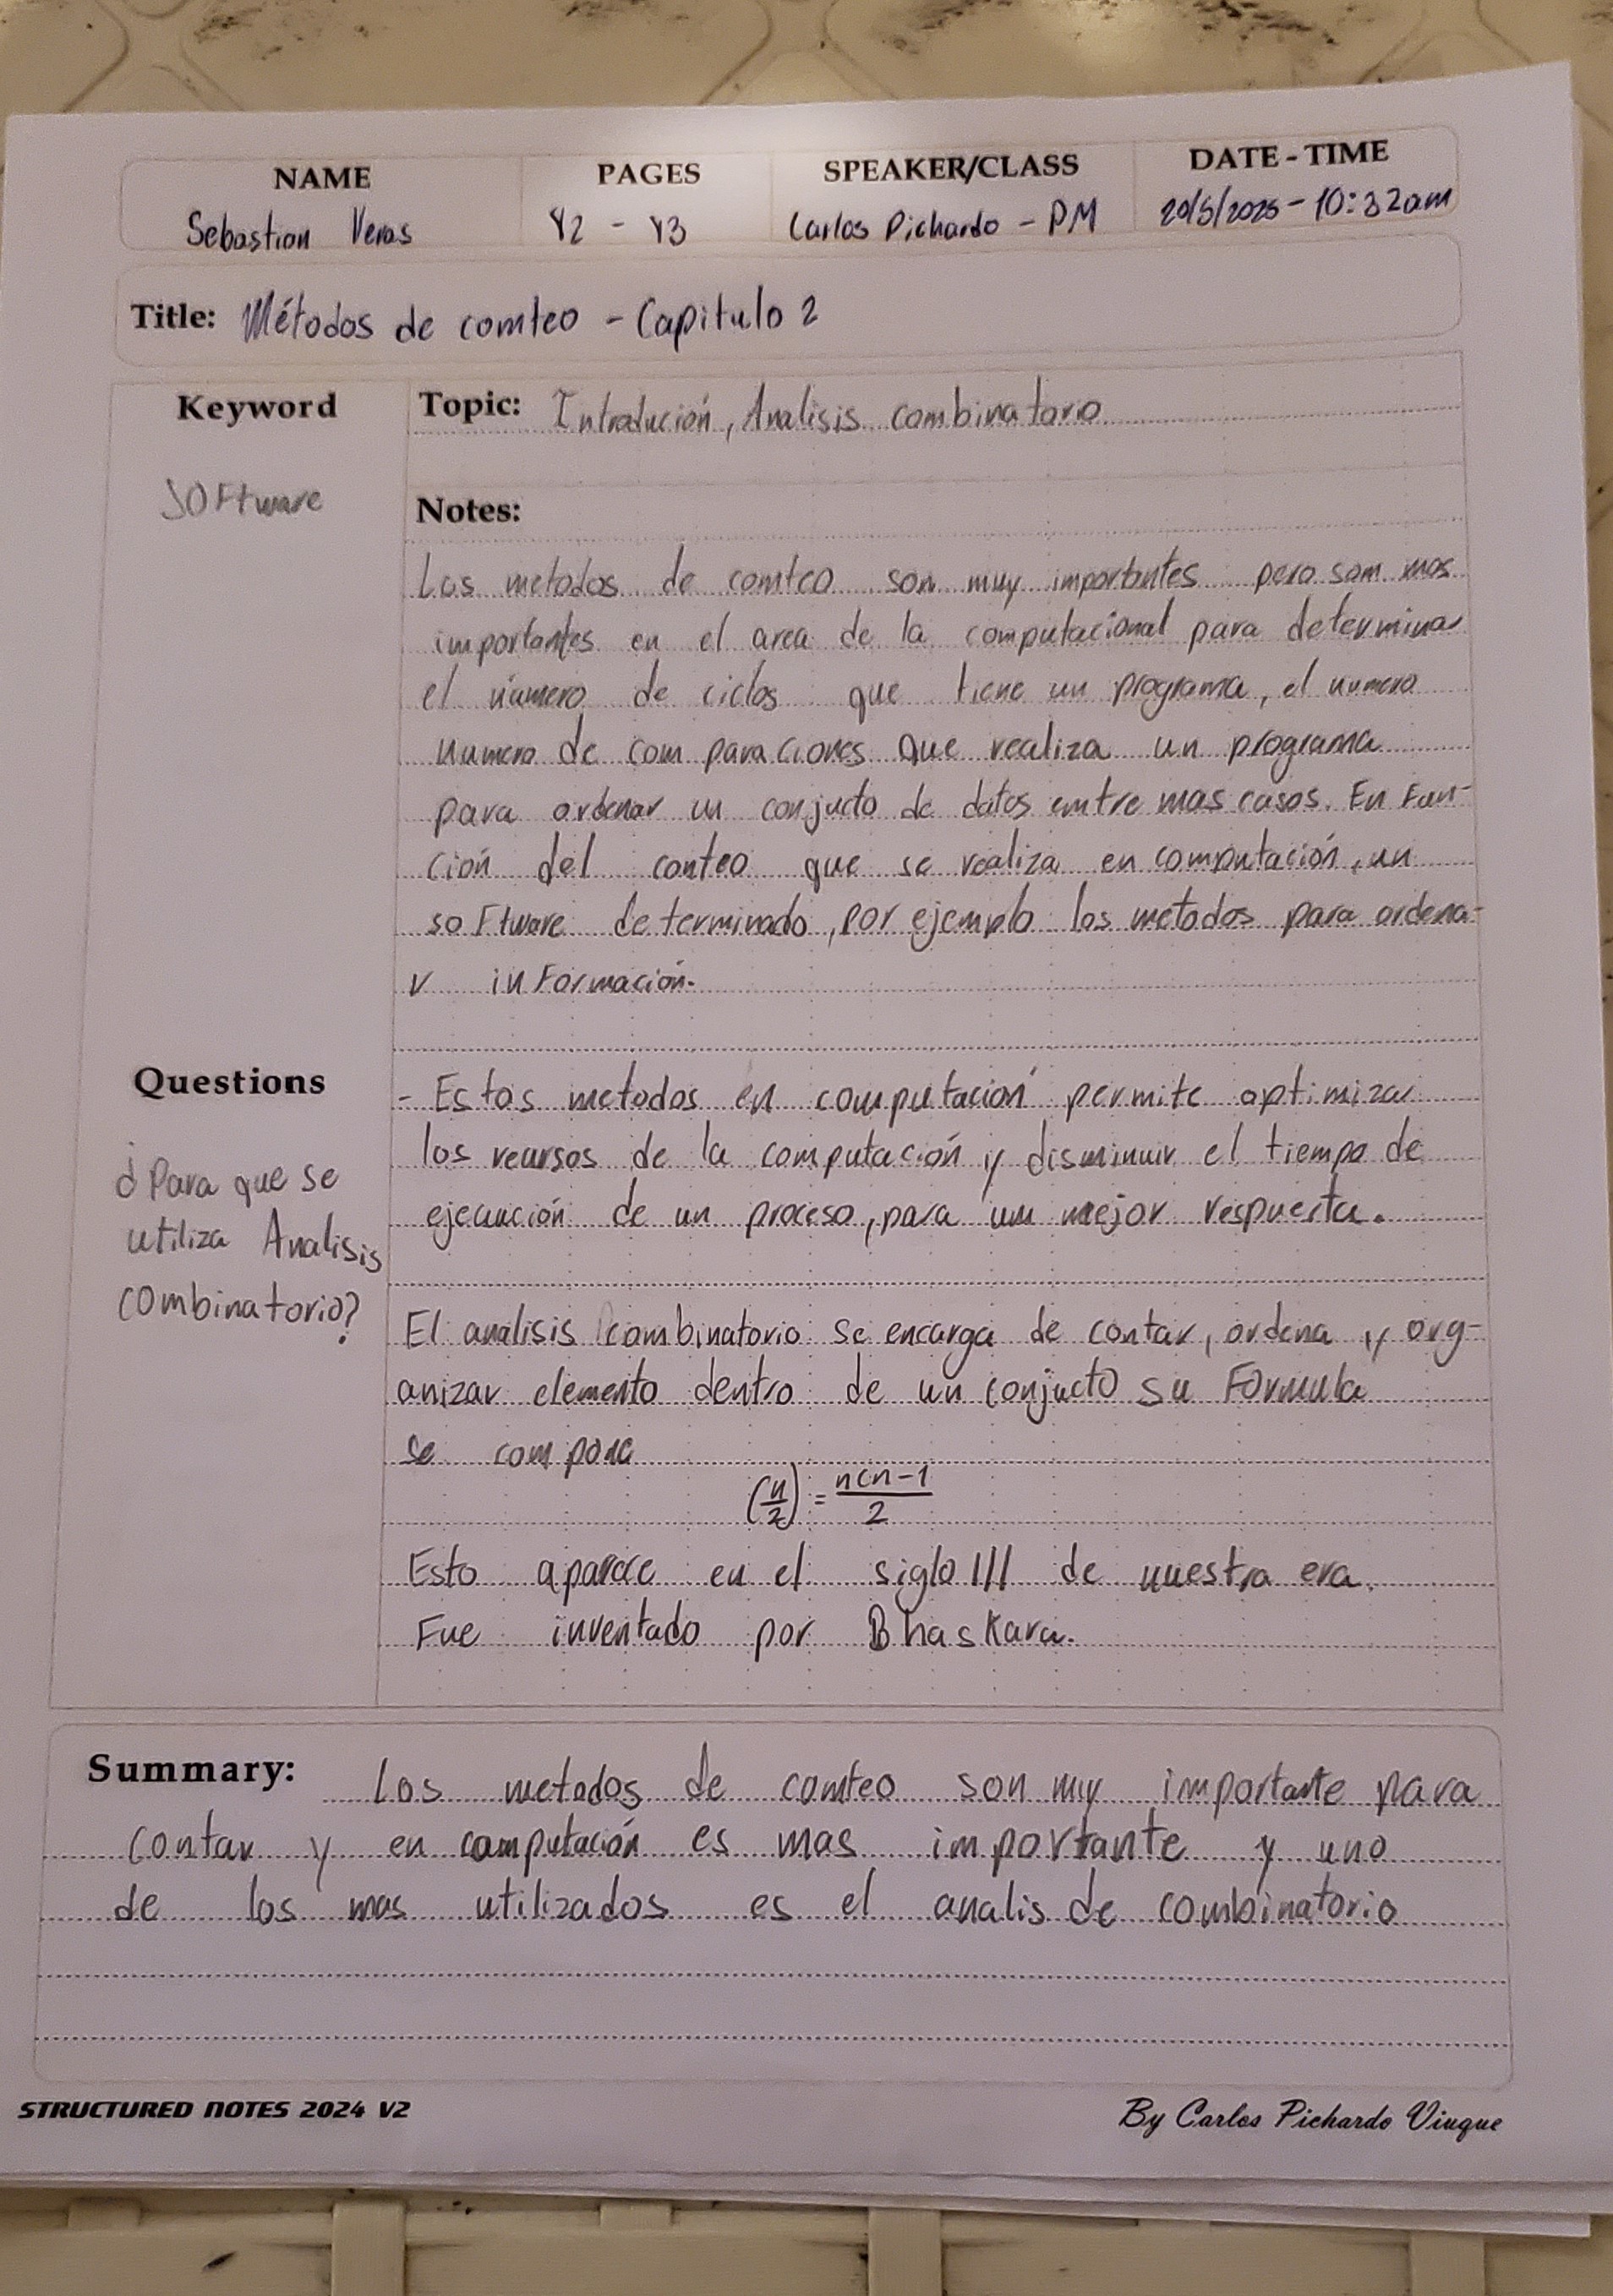 NAME PAGES SPEAKER/CLASS DATE - TIME
Sebastian Veras 42 - 43 Carlos Pichardo - PM 20/5/2025 - 10:32am
Title: Métodos de comteo - Capitulo 2
Keyword
Topic: Introdución, Analisis combinatorio
Software
Notes:
Los metodos de comteo son muy importantes pero som mas
importantes en el area de la computacional para determinar
el número de ciclos que tiene un programa, el numero
numero de comparaciones que realiza un programa
para ordenar un conjucto de datos emtre mas casos. En Fun-
ción del conteo que se realiza en computación, un
software determinado, por ejemplo los metodos para ordena-
r información.
Questions
- Estos metodos en computación permite optimizar
los recursos de la computación y disminuir el tiempo de
ejecucción de un proceso, para um mejor respuerta.
¿Para que se
utiliza Analisis
combinatorio?
El analisis combinatorio se encarga de contar, ordena y org-
anizar elemento dentro de un conjucto su Formula
se compone
(n/2) = n(n-1 / 2
Esto aparece en el siglo III de nuestra era.
Fue inventado por Bhaskara.
Summary: Los metodos de comteo son muy importante para
contar y en computación es mas importante y uno
de los mas utilizados es el analis de combinatorio
STRUCTURED NOTES 2024 V2
By Carlos Pichardo Viuque